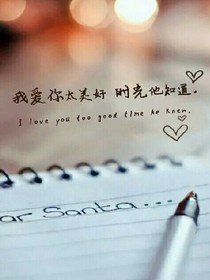 我爱你太美好 时光他知道.
I love you too good time he knew.
ar Santa...